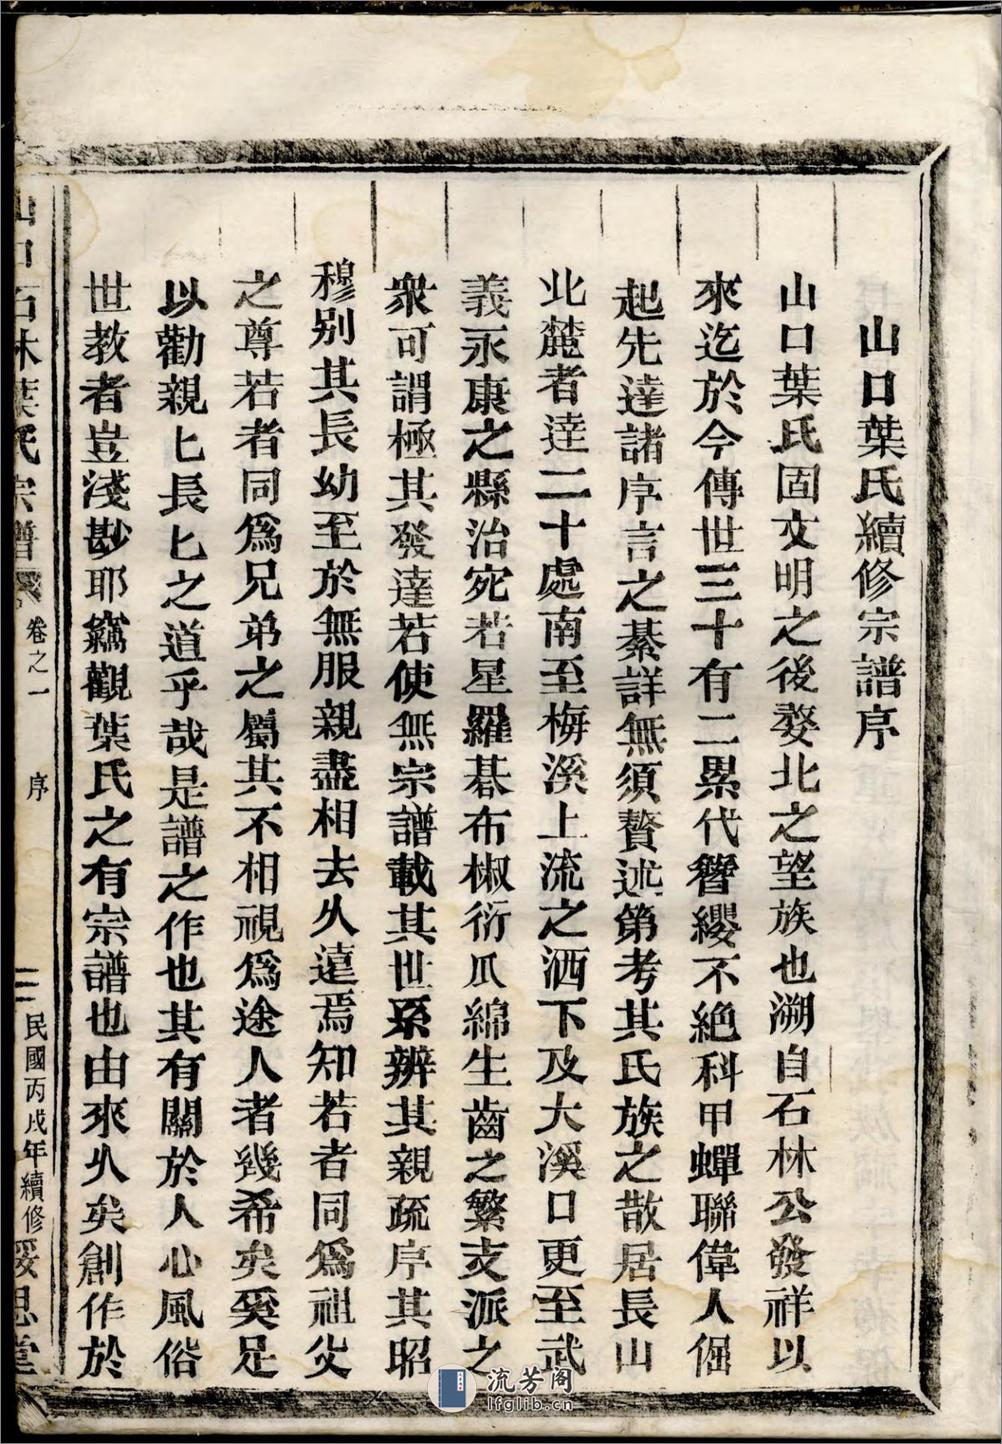 山口葉氏續修宗譜序
山口葉氏固文明之後婺北之望族也溯自石林公發祥以
來迄於今傳世三十有二累代簪纓不絕科甲蟬聯偉人倔
起先達諸序言之綦詳無須贅述第考其氏族之散居長山
北麓者達二十處南至梅溪上流之洒下及大溪口更至武
義永康之縣治宛若星羅碁布椒衍瓜綿生齒之繁支派之
衆可謂極其發達若使無宗譜載其世系辨其親疏序其昭
穆別其長幼至於無服親盡相去久遠焉知若者同爲祖父
之尊若者同爲兄弟之屬其不相視爲途人者幾希矣奚足
以勸親匕長匕之道乎哉是譜之作也其有關於人心風俗
世教者豈淺尠耶竊觀葉氏之有宗譜也由來久矣創作於
山口石林葉氏宗譜 卷之一 序 二 民國丙戌年續修 妥思堂
流芳阁
lfglib.cn